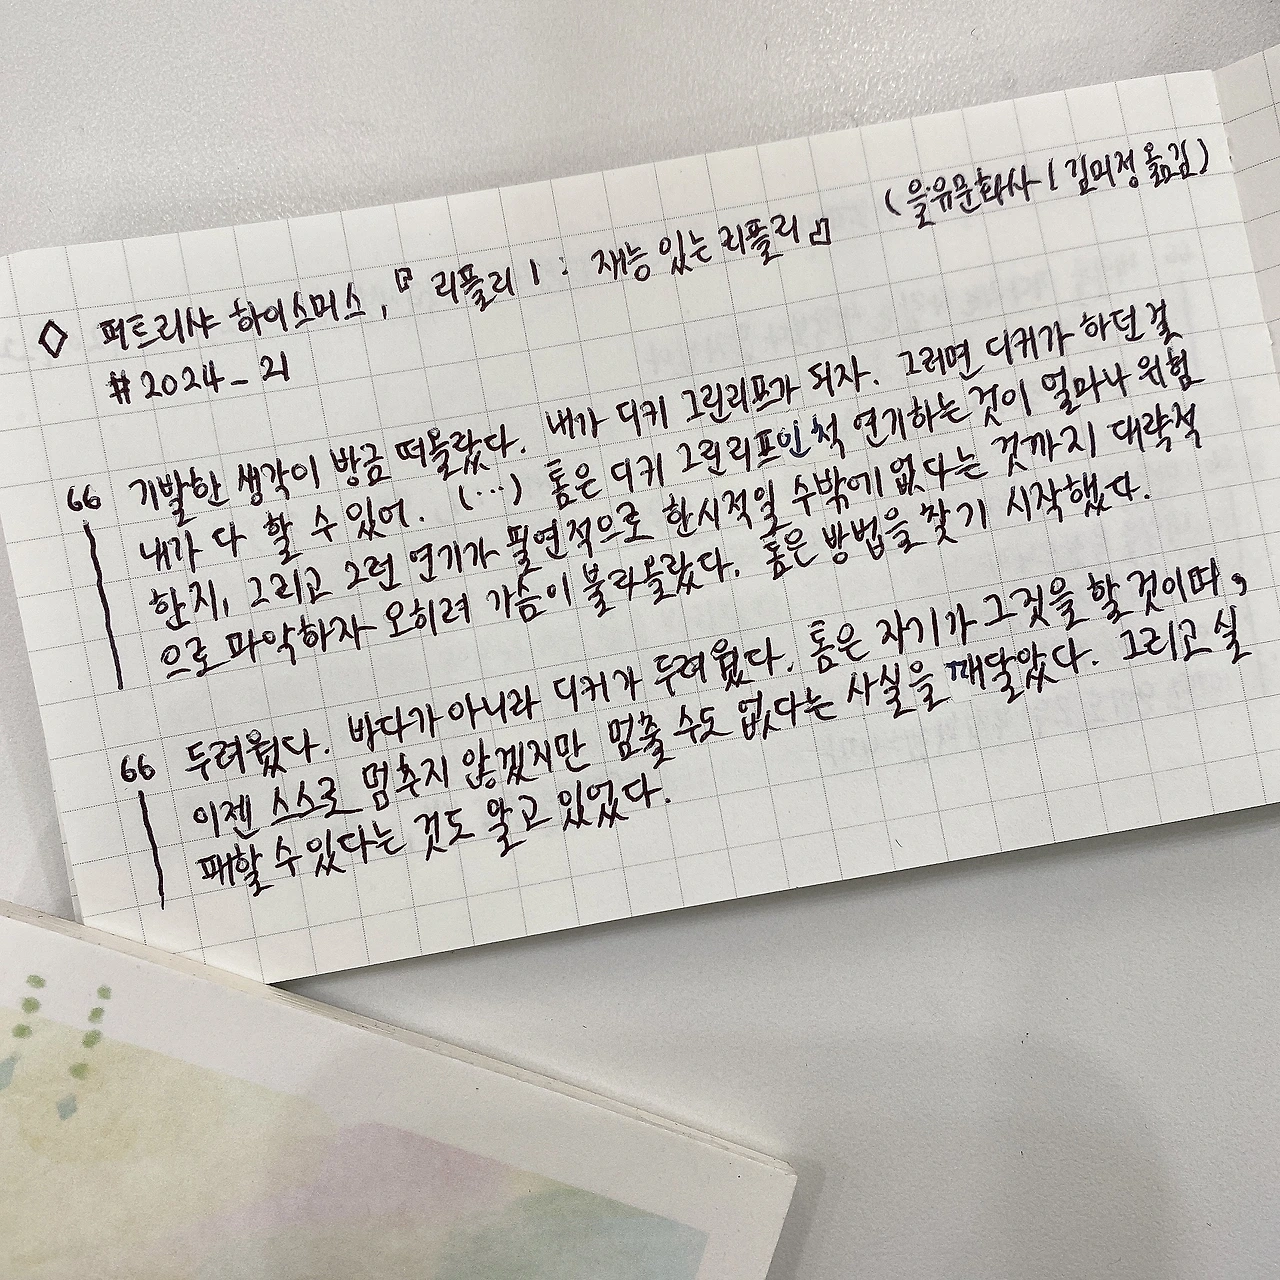 ◇ 퍼트리샤 하이스미스, 『리플리 1 : 재능 있는 리플리』 (을유문화사 / 김미정 옮김)
#2024-21
“ 기발한 생각이 방금 떠올랐다. 내가 디키 그린리프가 되자. 그러면 디키가 하던 걸
내가 다 할 수 있어. (…) 톰은 디키 그린리프인 척 연기하는 것이 얼마나 위험
한지, 그리고 그런 연기가 필연적으로 한시적일 수밖에 없다는 것까지 대략적
으로 파악하자 오히려 가슴이 불타올랐다. 톰은 방법을 찾기 시작했다.
“ 두려웠다. 바다가 아니라 디키가 두려웠다. 톰은 자기가 그것을 할 것이며,
이젠 스스로 멈추지 않겠지만 멈출 수도 없다는 사실을 깨달았다. 그리고 실
패할 수 있다는 것도 알고 있었다.